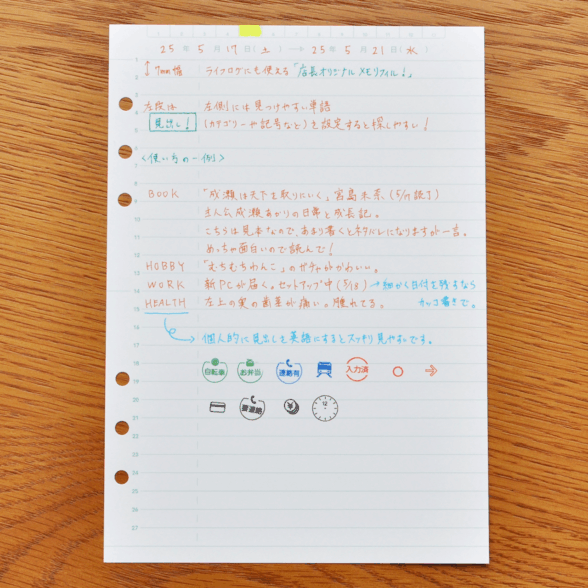 25年 5月 17日(土) → 25年 5月 21日(水)
↕ 7mm幅 ライフログにも使える「店長オリジナルメモリフィル!」
左段は 左側には見つけやすい単語
見出し! (カテゴリーや記号など)を設定すると探しやすい!
<使い方の一例>
BOOK 「成瀬は天下を取りにいく」宮島未奈(5/17読了)
主人公成瀬あかりの日常と成長記。
こちらは見本なので、あまり書くとネタバレになりますが一言。
めっちゃ面白いので読んで!
HOBBY 「もちもちわんこ」のガチャがかわいい。
WORK 新PCが届く。セットアップ中(5/18) →細かく日付を残すなら
カッコ書きで。
HEALTH 左上の奥の歯茎が痛い。腫れてる。
個人的に見出しを英語にするとスッキリ見やすいです。
自転車 お弁当 連絡有 入力済
要連絡 ¥
1
2
3
4
5
6
7
8
9
10
11
12
13
14
15
16
17
18
19
20
21
22
23
24
25
26
27